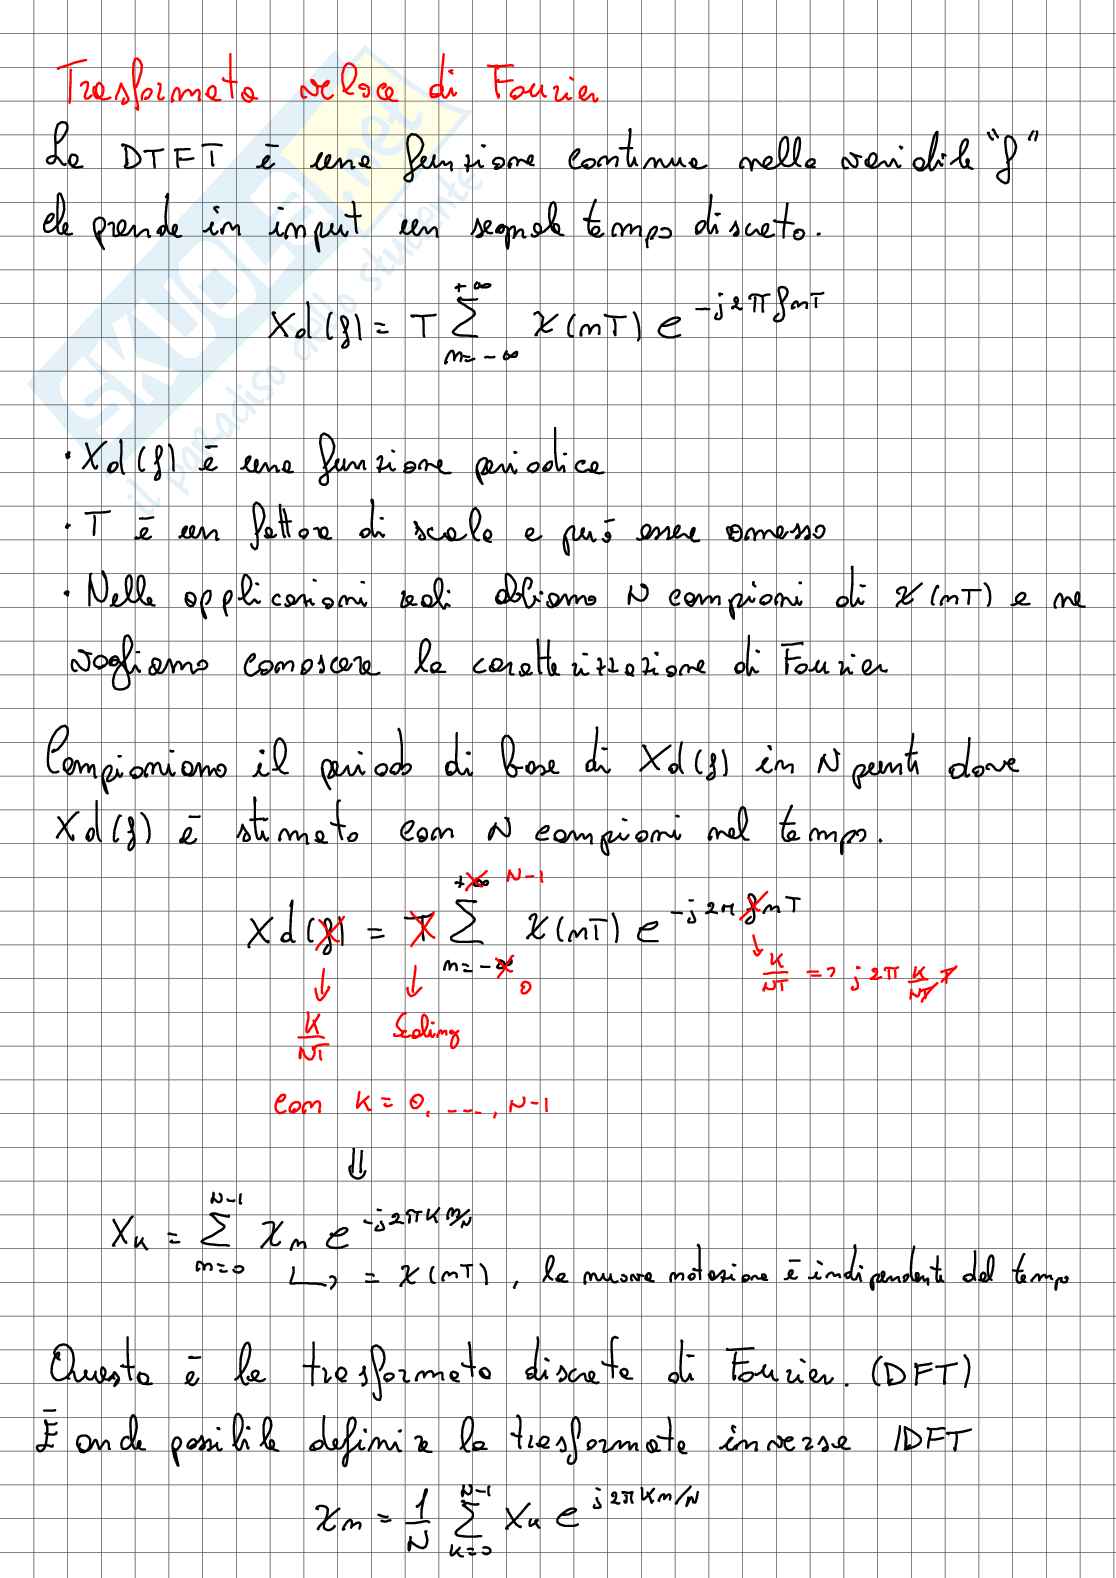 Trasformata veloce di Fourier
La DTFT è una funzione continua nella variabile "f"
che prende in input un segnale tempo discreto.
Xd(f) = T ∑_{n=-∞}^{+∞} x(nT) e^{-j2πfnT}
· Xd(f) è una funzione periodica
· T è un fattore di scala e può essere omesso
· Nelle applicazioni reali abbiamo N campioni di x(nT) e ne
vogliamo conoscere la caratterizzazione di Fourier
Campioniamo il periodo di base di Xd(f) in N punti dove
Xd(f) è stimato con N campioni nel tempo.
Xd(f) = T ∑_{n=-∞}^{+∞} x(nT) e^{-j2πfnT}
N-1
0
↓ K/NT
↓ Scaling
↓ K/NT => j2π K/NT T
con K = 0, ..., N-1
⇓
X_k = ∑_{n=0}^{N-1} x_n e^{-j2πKn/N}
↳ = x(nT), la nuova notazione è indipendente dal tempo
Questa è la trasformata discreta di Fourier. (DFT)
È anche possibile definire la trasformata inversa IDFT
x_n = 1/N ∑_{k=0}^{N-1} X_k e^{j2πKn/N}
SKUOLA.net
il paradiso dello studente